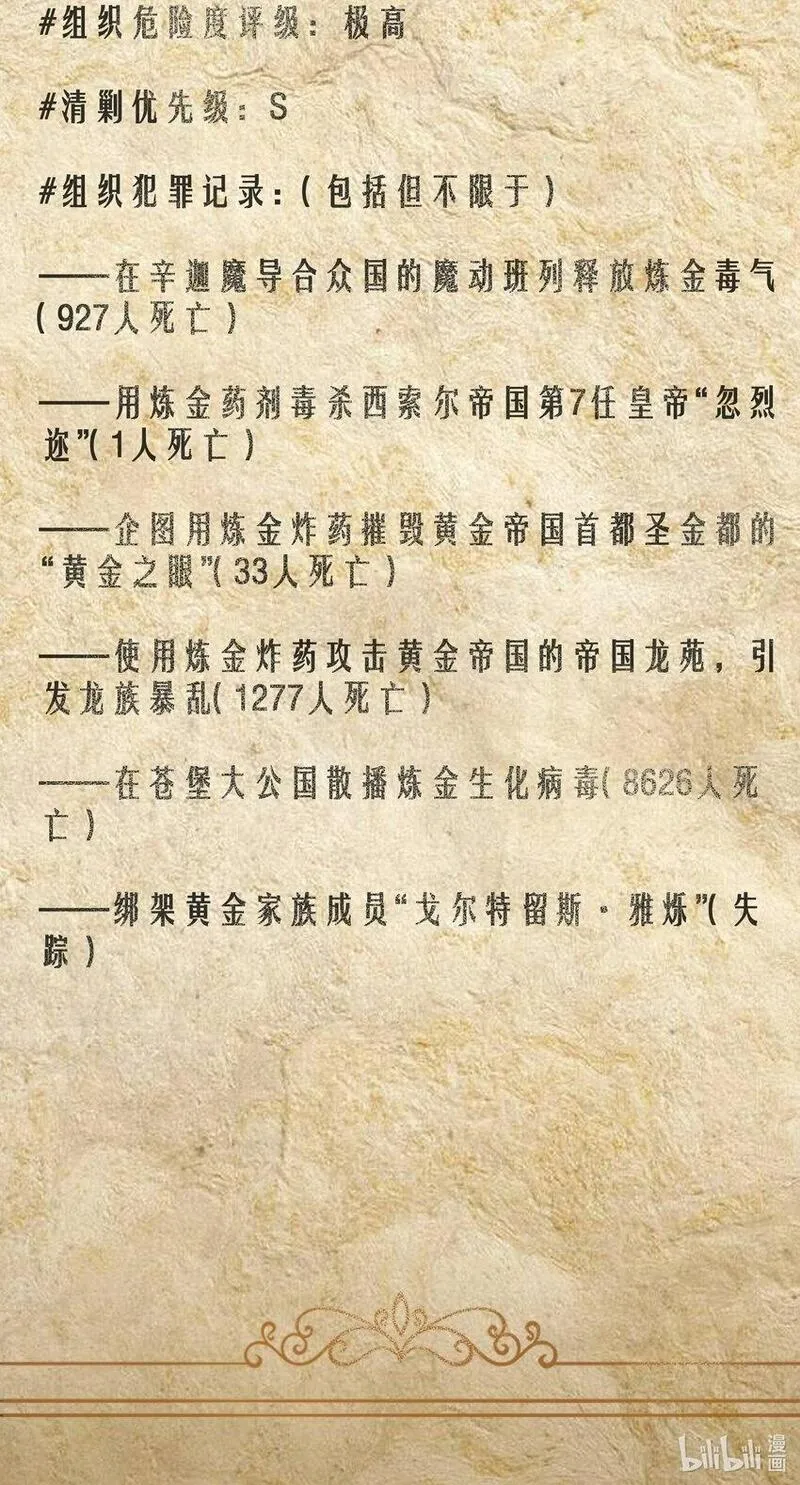 #组织危险度评级：极高
#清剿优先级：S
#组织犯罪记录：(包括但不限于)
——在辛迦魔导合众国的魔动班列释放炼金毒气
(927人死亡)
——用炼金药剂毒杀西索尔帝国第7任皇帝“忽烈
迩”(1人死亡)
——企图用炼金炸药摧毁黄金帝国首都圣金都的
“黄金之眼”(33人死亡)
——使用炼金炸药攻击黄金帝国的帝国龙苑，引
发龙族暴乱(1277人死亡)
——在苍堡大公国散播炼金生化病毒(8626人死
亡)
——绑架黄金家族成员“戈尔特留斯·雅烁”(失
踪)
bilibili 漫画